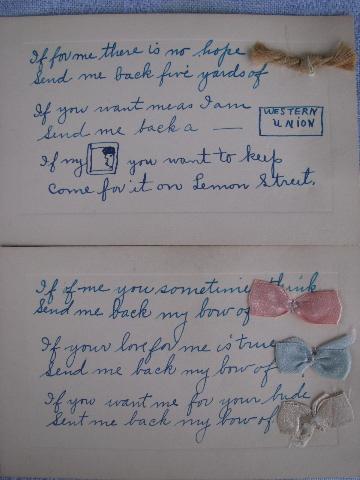 If for me there is no hope
Send me back five yards of
If you want me as I am
Send me back a —
WESTERN
UNION
If my you want to keep
come for it on Lemon Street.
If of me you sometimes think
Send me back my bow of
If your love for me is true
Send me back my bow of
If you want me for your bride
Sent me back my bow of